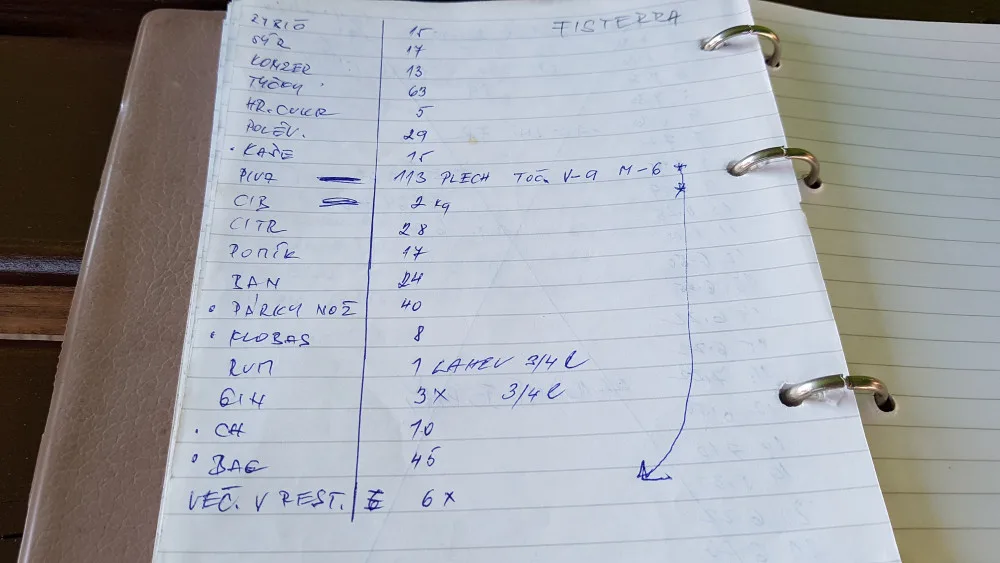 FISTERRA
15
SÝR 17
KONZER 13
TYČKY 63
HR. CUKR 5
POLÉV. 29
• KAŠE 15
PIVA 113 PLECH TOČ. V-9 M-6 *
CIB 2 kg *
CITR 28
17
BAN 24
• PÁRKY NOŽ 40
• KLOBAS 8
RUM 1 LAHEV 3/4 l
GIN 3X 3/4 l
• CH 10
• BAG 45
VEČ. V REST. 6 X